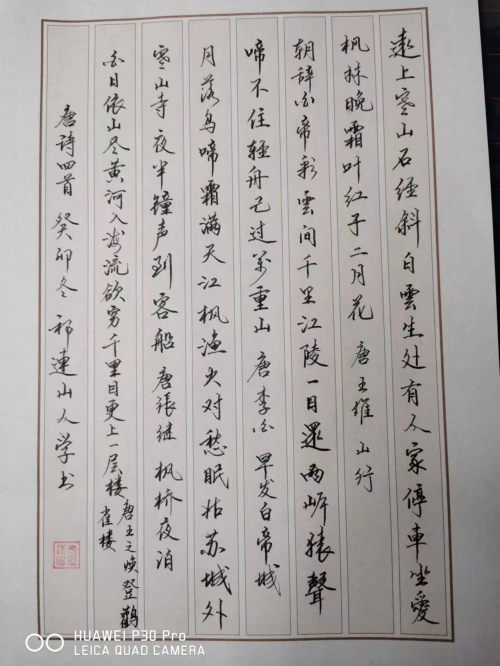 遠上寒山石径斜白雲生处有人家停車坐愛
枫林晚霜叶红于二月花 唐王維 山行
朝辞白帝彩雲间千里江陵一日還两岸猿聲
啼不住轻舟已过万重山 唐李白 早发白帝城
月落乌啼霜满天江枫渔火对愁眠姑苏城外
寒山寺夜半鐘声到客船 唐張继 枫桥夜泊
白日依山尽黄河入海流欲穷千里目更上一层楼 唐王之焕登鹳
雀楼
唐诗四首 癸卯冬 祁連山人学书
HUAWEI P30 Pro
LEICA QUAD CAMERA